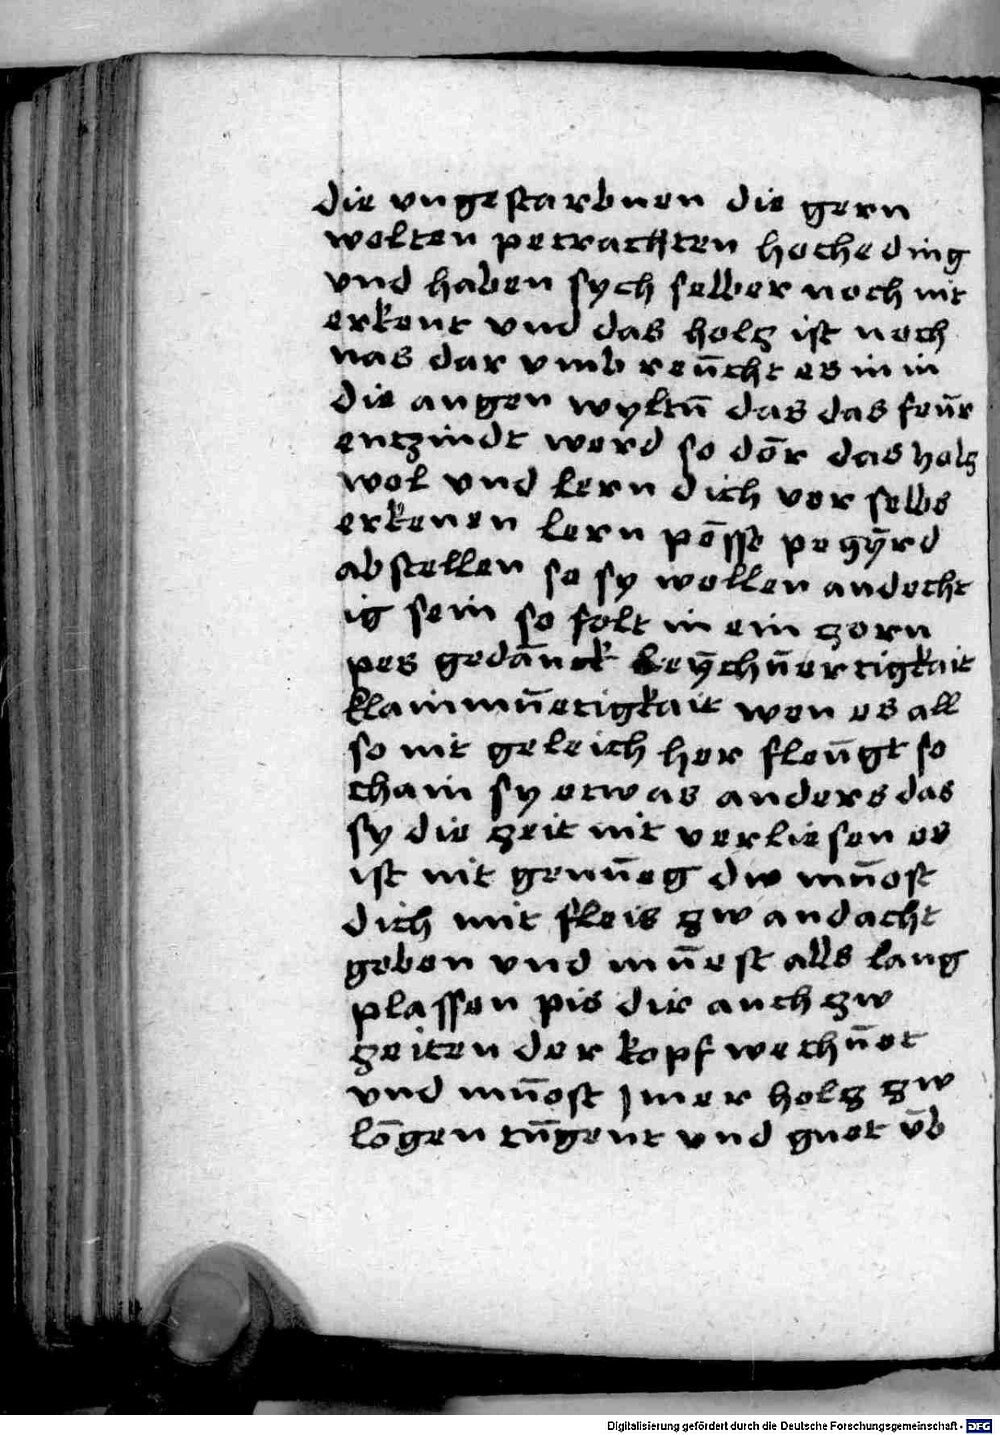 die vngestarbnen die gern
wolten petrachten hoche ding
vnd haben sych selber noch nit
erkent vnd das holcz ist noch
nas dar vmb reücht es in in
die augen wyltü das das feür
entzindt werd so dör das holcz
wol vnd lern dich vor selbs
erkenen lern pösse pegÿrd
abstellen so sy wellen andecht
ig sein so felt in ein zorn
pes gedänck leÿchüertigkait
klainmüetigkait wen es all
so nit geleich her fleügt so
thain sy etwas anders das
sy die zeit nit verliesen es
ist nit genüeg dw müost
dich mit fleis zw andacht
geben vnd müest alls lang
plassen pis dir auch zw
zeiten der kopf wechüet
vnd müost jmer holcz zw
lögen tügent vnd guet v̈b
Digitalisierung gefördert durch die Deutsche Forschungsgemeinschaft - DFG